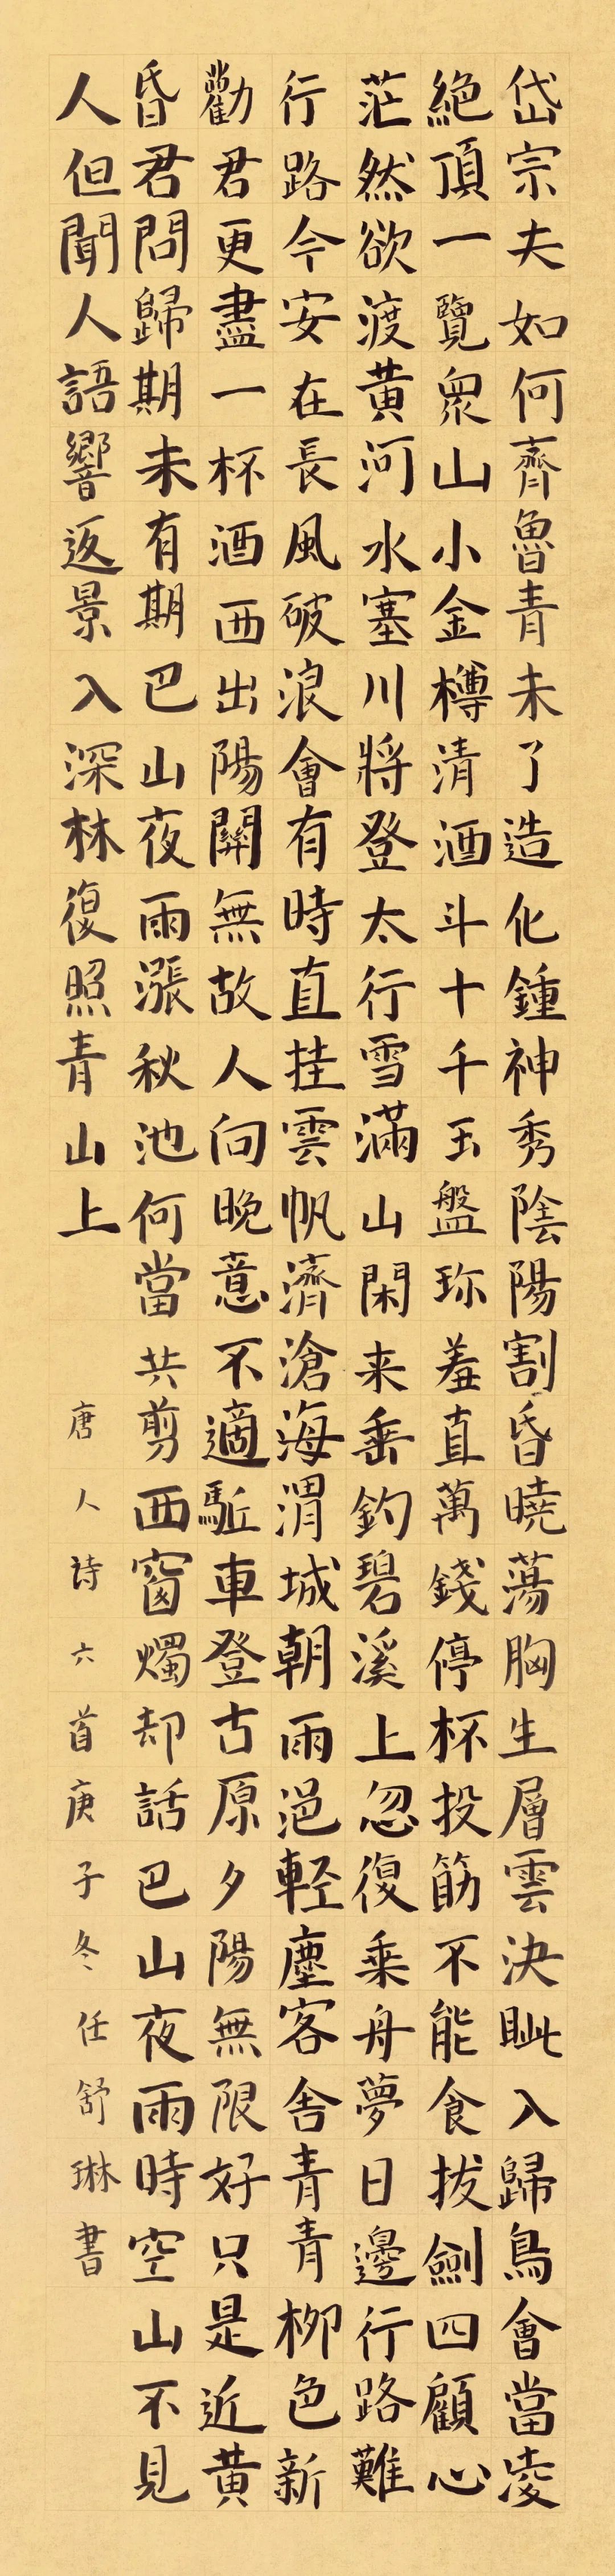 岱宗夫如何齊魯青未了造化鍾神秀陰陽割昏曉蕩胸生層雲決眦入歸鳥會當淩
絕頂一覽眾山小金樽清酒斗十千玉盤珎羞直萬錢停杯投筯不能食拔劍四顧心
茫然欲渡黄河水塞川將登太行雪滿山閑来垂釣碧溪上忽復乘舟夢日邊行路難
行路今安在長風破浪會有時直挂雲帆濟滄海渭城朝雨浥軽塵客舍青青柳色新
勸君更盡一杯酒西出陽關無故人向晚意不適駈車登古原夕陽無限好只是近黄
昏君問歸期未有期巴山夜雨漲秋池何當共剪西窗燭却話巴山夜雨時空山不見
人但聞人語響返景入深林復照青山上
唐人詩六首庚子冬任舒琳書